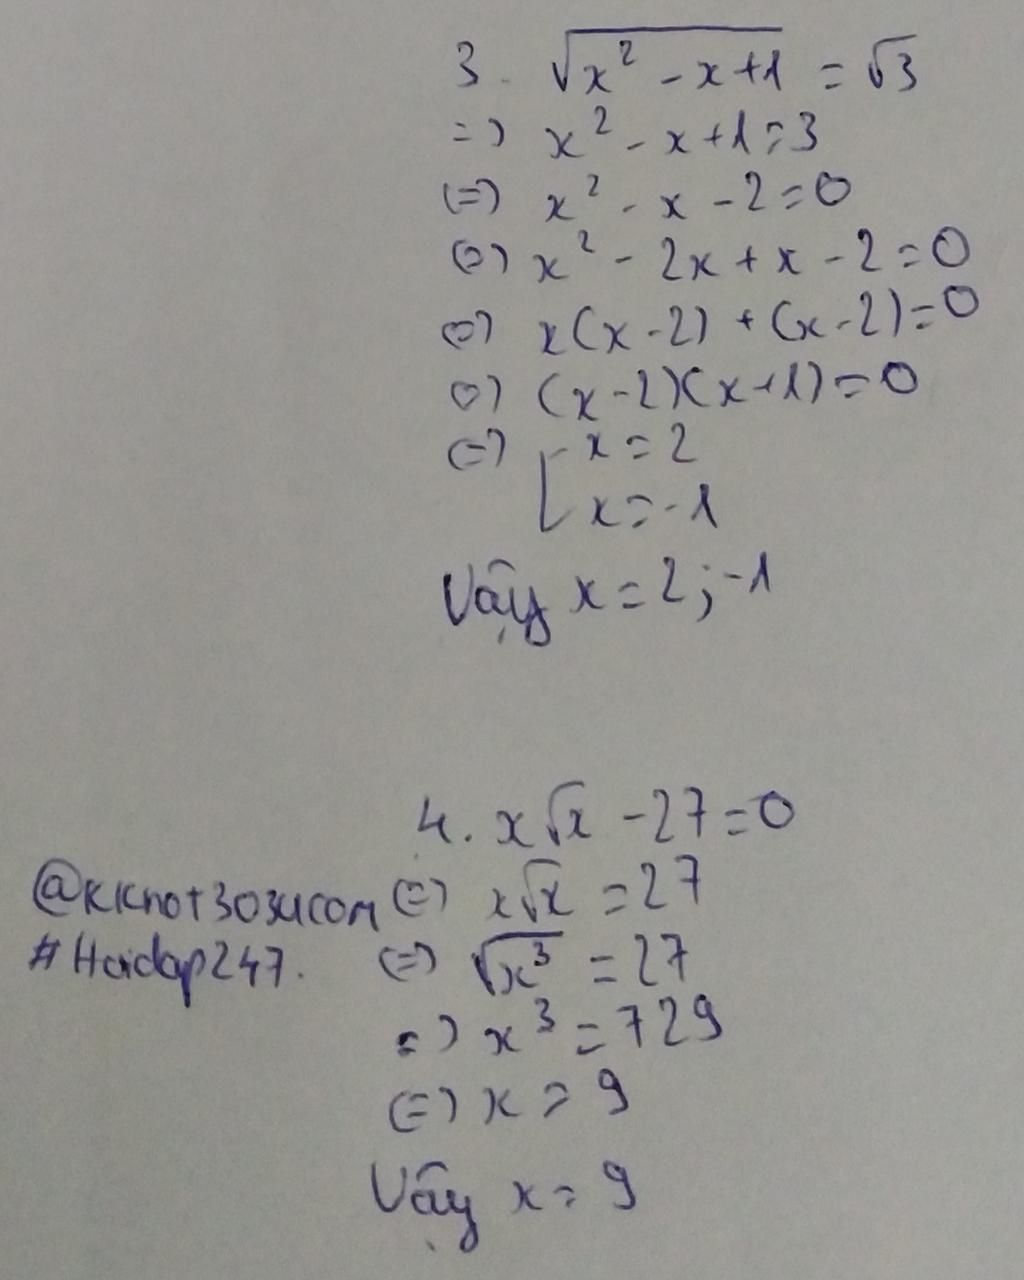 3. √(x² - x + 1) = √3
=> x² - x + 1 = 3
<=> x² - x - 2 = 0
<=> x² - 2x + x - 2 = 0
<=> x(x - 2) + (x - 2) = 0
<=> (x - 2)(x + 1) = 0
<=> [ x = 2
x = -1
Vậy x = 2; -1
4. x√x - 27 = 0
<=> x√x = 27
@kknot303ucom
<=> √x³ = 27
#Hoidap247.
=> x³ = 729
<=> x = 9
Vậy x = 9